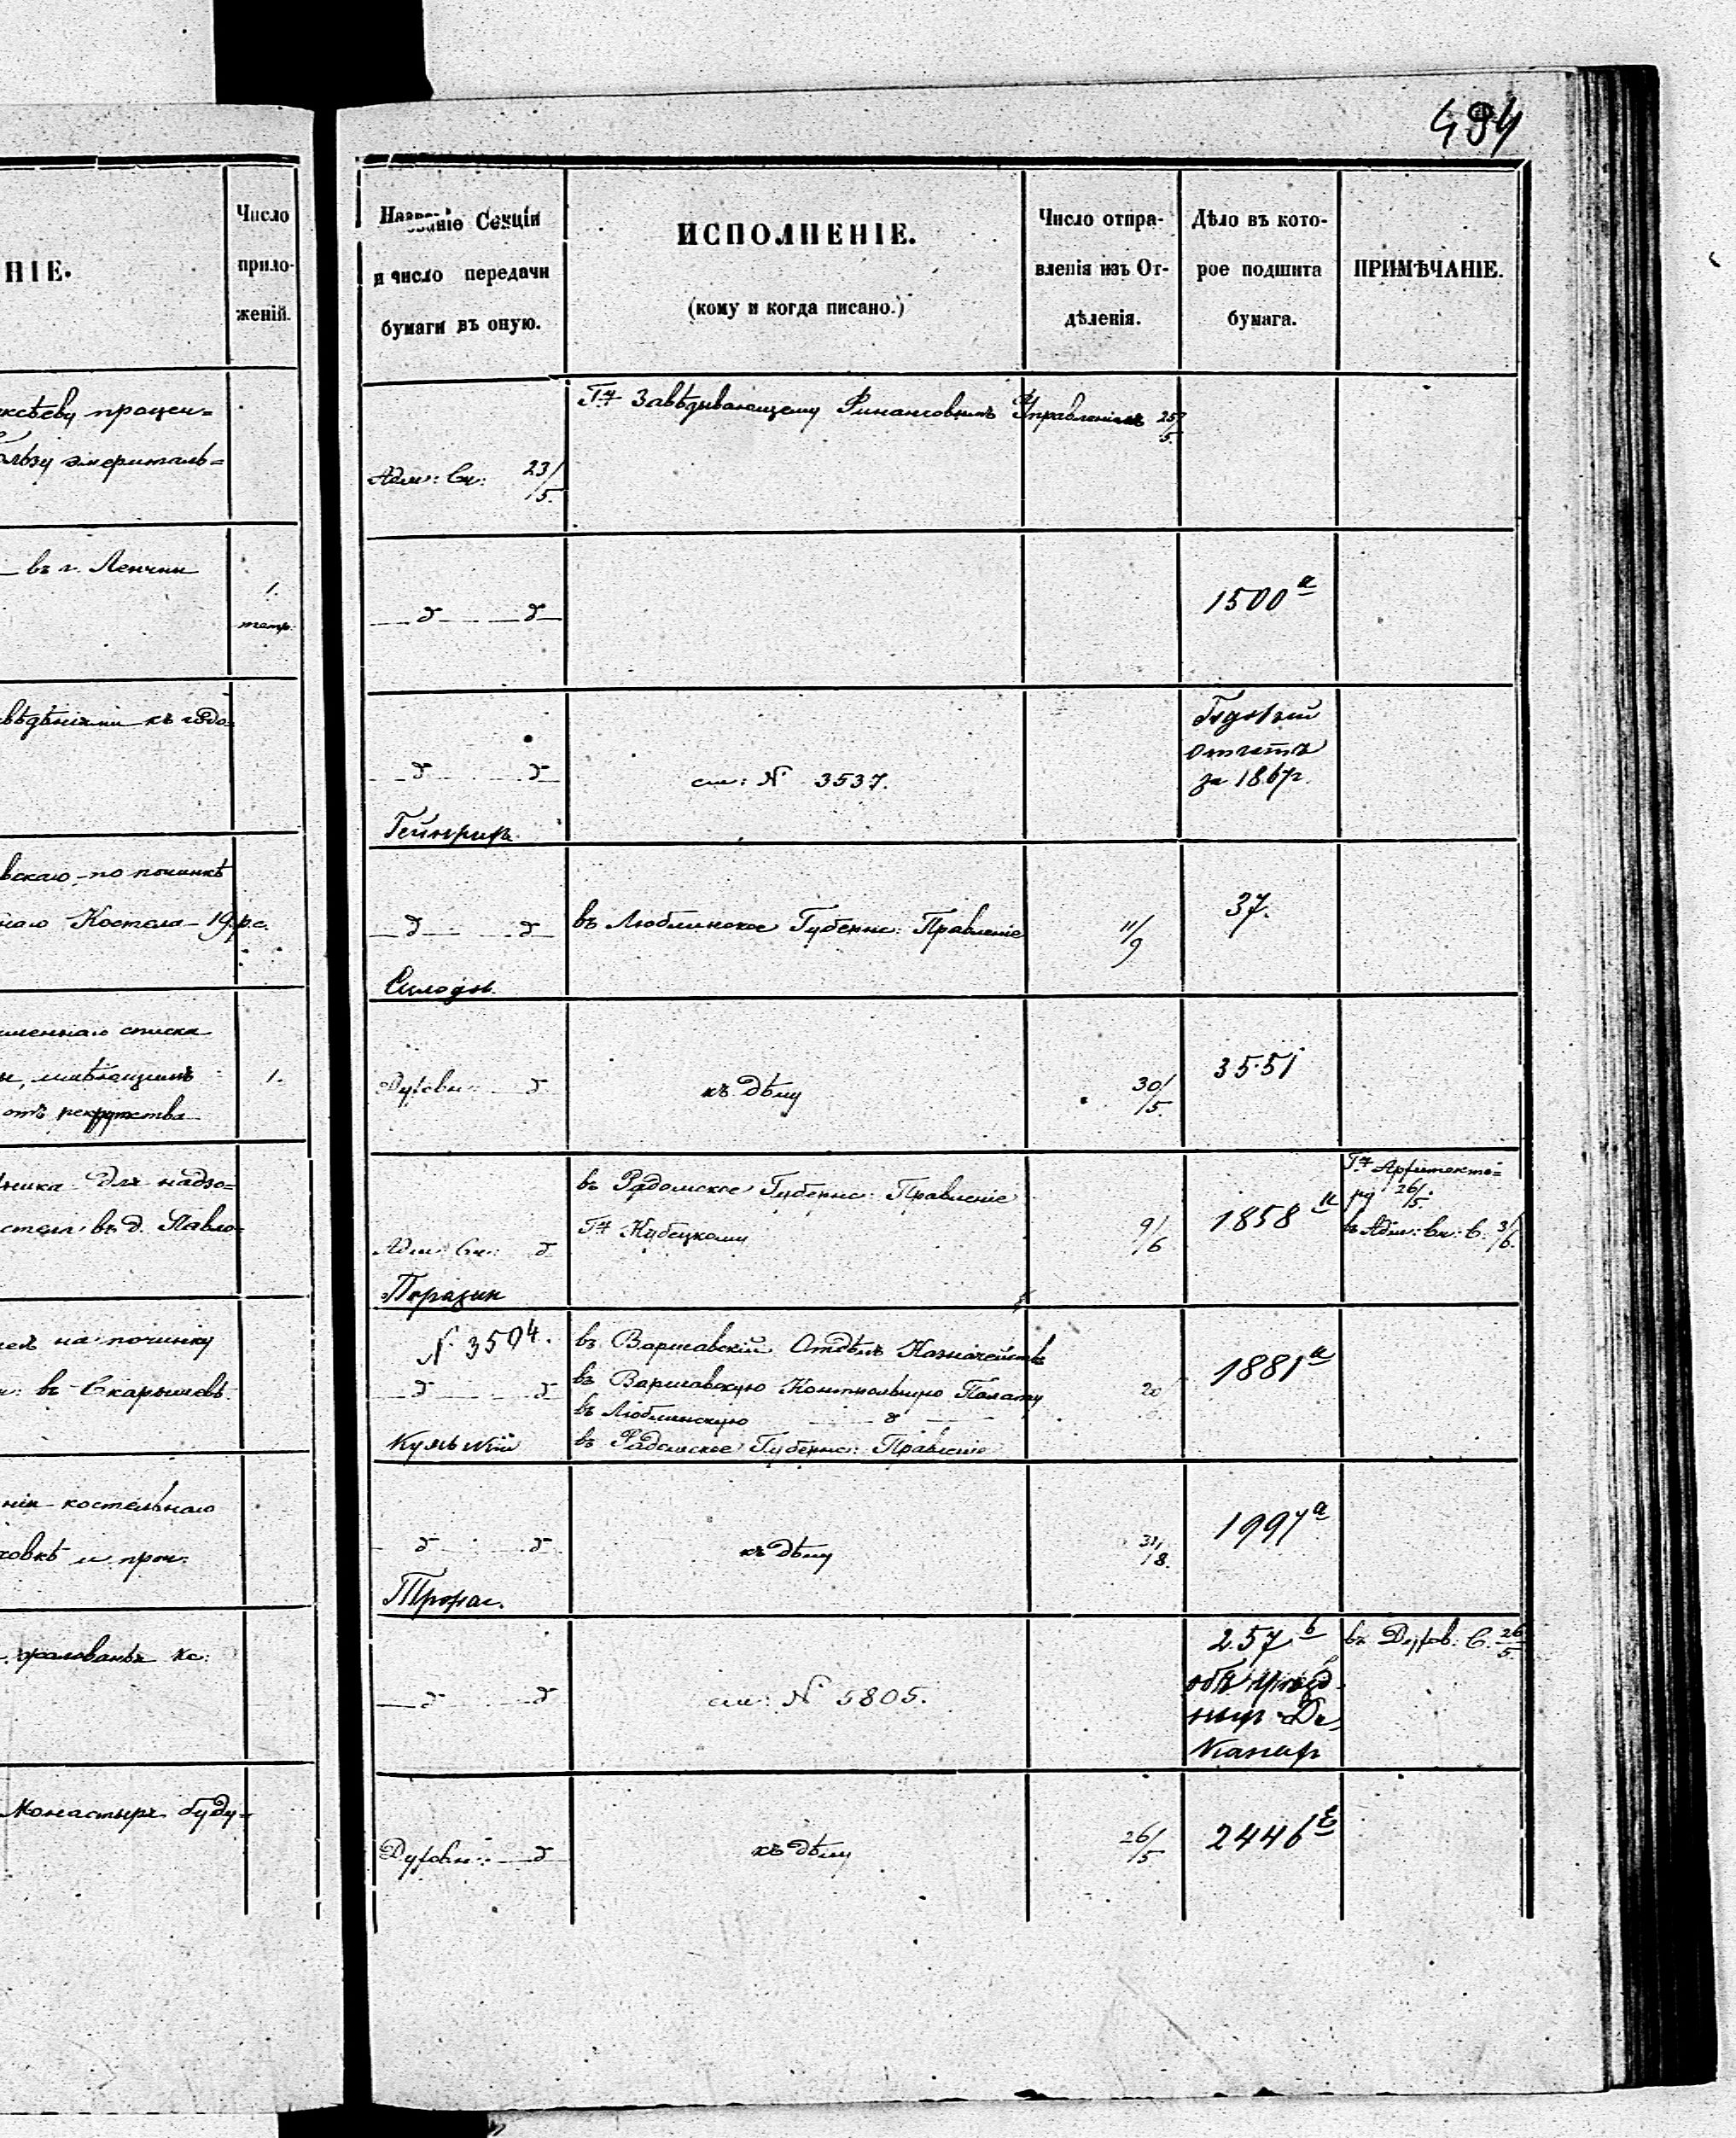 494
НІЕ.
Число
прило-
женій.
ксѣеву процен=
ользу эмериталь=
въ г. Ленчни
1.
тетр.
вѣдѣніями къ годо=
вскаго по починкѣ
наго Костела 19 р.с.
именнаго списка
имѣющимъ
1.
отъ рекрутства
ника для надзо=
въ д. Павло=
на починку
въ Скарышевѣ
нія костельнаго
ховкѣ и проч:
жалованье кс:
Монастырь буду=
Названіе Секціи
и число передачи
бумаги въ оную.
ИСПОЛНЕНІЕ.
(кому и когда писано.)
Число отпра-
вленія изъ От-
дѣленія.
Дѣло въ кото-
рое подшита
бумага.
ПРИМѢЧАНІЕ.
Адм: Ск: 23/5.
Гну Завѣдывающему Финансовымъ Управленіемъ 25/5.
— д — — д —
1500 а
— д — д —
Гейнрихъ
см: № 3537.
Годовый
отчетъ
за 1867 г.
— д — д —
въ Люблинское Губернс: Правленіе
11/9
37.
Духовн: — д
къ дѣлу
30/5.
3551
Адм: Ск: д
въ Радомское Губернс: Правленіе
Гну Кубецкому
9/6
1858 а
Гну Архитекто=
ру 26/5.
въ Адм: Ск: С. 3/6.
№ 3504.
— д — д —
въ Варшавскій Отдѣлъ Казначейства
въ Варшавскую Контрольную Палату
въ Люблинскую — д —
въ Радомское Губернс: Правленіе
20
1881 а
— д — д —
къ дѣлу
31/8.
1997 а
— д — д
см: № 5805.
257 b
объ уѣзд
ныхъ Де
канах
въ Духов: С. 26/5.
Духовн: — д
къ дѣлу
26/5
2446